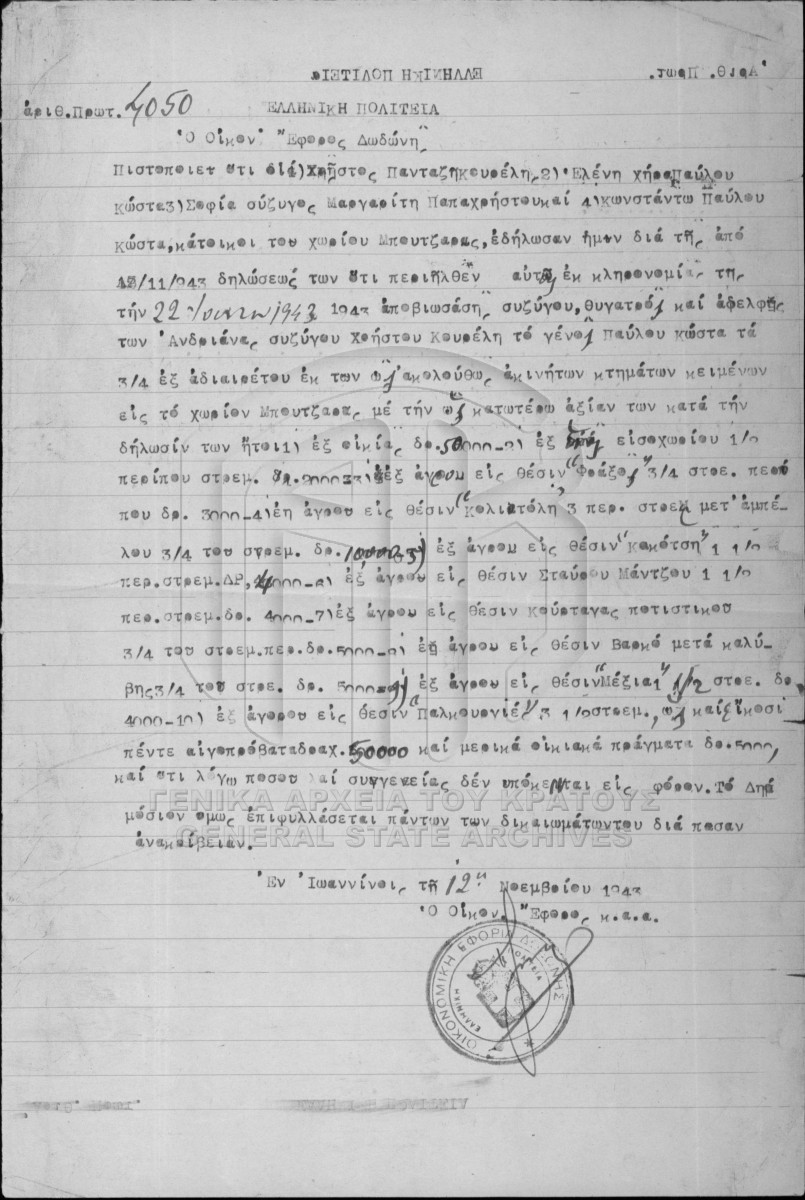 ἀριθ.Πρωτ. 4050 ΕΛΛΗΝΙΚΗ ΠΟΛΙΤΕΙΑ
Ὁ Οἰκον Ἔφορος Δωδώνη
Πιστοποιεῖ ὅτι οἱ 1)Χρῆστος Πανταζηκουρέλη,2) Ἑλένη χήρα Παύλου
κώστα3)Σοφία σύζυγος Μαργαρίτη Παπαχρήστου καί 4)κωνστάντω Παύλου
κώστα,κάτοικοι του χωρίου Μπουτζαρας,ἐδήλωσαν ἡμιν διά τῆς ἀπό
/11/943 δηλώσεώς των ὅτι περιῆλθεν αὐτοῖς ἐκ κληρονομίας τῆς
τήν 22 Ἰουνίου 1943 1943 ἀποβιωσάσης συζύγου,θυγατρός καί ἀδελφῆς
των Ἀνδριάνας συζύγου Χρήστου Κουρέλη τό γένος Παύλου κώστα τά
3/4 ἐξ ἀδιαιρέτου ἐκ των ὡς ἀκολούθως ἀκινήτων κτημάτων κειμένων
εἰς τό χωρίον Μπουτζαρας μέ τήν ὡς κατωτέρω ἀξίαν των κατά τήν
δήλωσίν των ἤτοι1) ἐξ οἰκίας δρ.50000-2) ἐξ εἰσοχωρίου 1/2
περίπου στρεμ. δρ.2000-3) ἐξ ἀγρου εἰς θέσιν "Φράξος" 3/4 στρε. περί
που δρ. 3000-4) ἐη ἀγρου εἰς θέσιν "Κολιατόλη" 3 περ. στρεμ μετ'ἀμπέ-
λου 3/4 του στρεμ. δρ. 10000 5) ἐξ ἀγρου εἰς θέσιν "Κακότση" 1 1/2
περ.στρεμ.ΔΡ, 4000-6) ἐξ ἀγρου εἰς θέσιν Σταύρου Μάντζου 1 1/2
περ.στρεμ.δρ. 4000-7)ἐξ ἀγρου εἰς θέσιν Κούρταγας ποτιστικου
3/4 του στρεμ.περ.δρ.5000-8) ἐξ ἀγρου εἰς θέσιν Βαρκό μετά καλύ-
βης3/4 του στρε. δρ. 5000-9) ἐξ ἀγρου εἰς θέσιν"Μέξια" 1 1/2 στρε. δρ
4000-10) ἐξ ἀγορου εἰς θέσιν "Παλκουργιές" 3 1/2στρεμ., ὡς καί εἴκοσι
πέντε αἰγοπρόβαταδραχ.50000 καί μερικά οἰκιακά πράγματα δρ.5000,
καί ὅτι λόγω ποσου καί συγγενείας δέν ὑπόκειται εἰς φόρον.Τό Δημ
μόσιον ομως ἐπιφυλλάσεται πάντων των δικαιωμάτωντου διά πασαν
ἀνακρίβειαν.
Ἐν Ἰωαννίνοις τῇ 12η Νοεμβρίου 1943
Ὁ Οἰκον. Ἔφορος κ.α.α.
ΟΙΚΟΝΟΜΙΚΗ ΕΦΟΡΙΑ ΔΩΔΩΝΗΣ
ΕΛΛΗΝΙΚΗ ΠΟΛΙΤΕΙΑ
ΓΕΝΙΚΑ ΑΡΧΕΙΑ ΤΟΥ ΚΡΑΤΟΥΣ
GENERAL STATE ARCHIVES